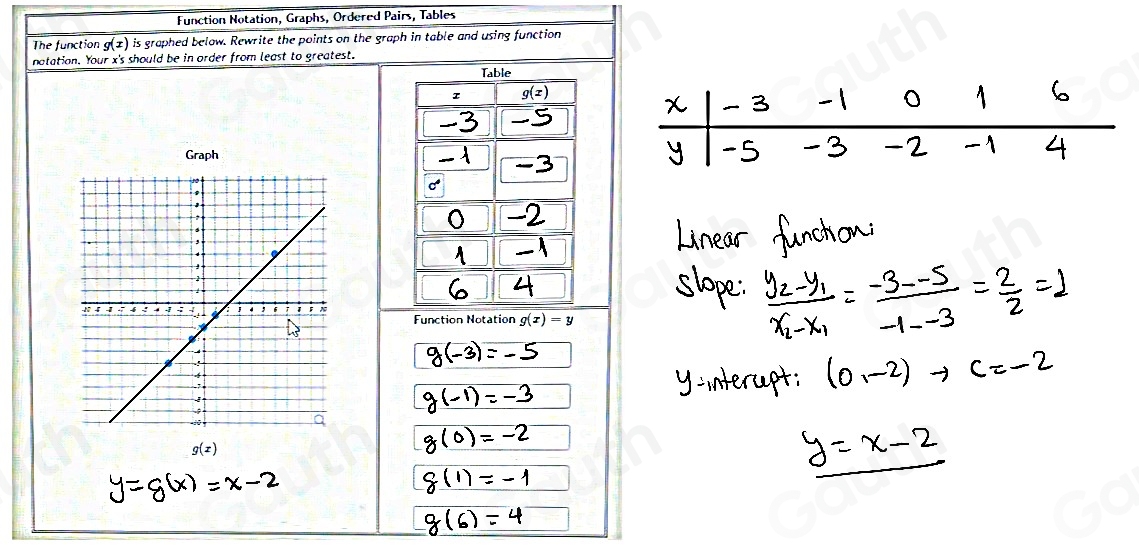 Function Notation, Graphs, Ordered Pairs, Tables
The function g(x) is graphed below. Rewrite the points on the graph in table and using function
notation. Your x's should be in order from least to greatest.
Graph
g(x)
y=g(x)=x-2
Table
x g(x)
-3 -5
-1 -3
σ⁴
0 -2
1 -1
6 4
Function Notation g(x) = y
g(-3)=-5
g(-1)=-3
g(0)=-2
g(1)=-1
g(6)=4
x | -3 -1 0 1 6
y | -5 -3 -2 -1 4
Linear function:
Slope: y₂-y₁/x₂-x₁ = -3--5/-1--3 = 2/2 = 1
y-intercept: (0,-2) → c=-2
y=x-2